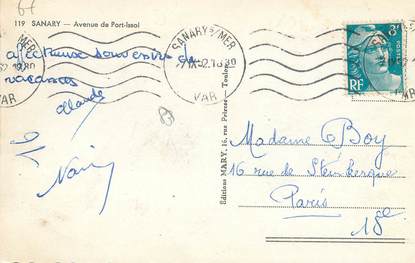 119 SANARY — Avenue de Port-Issol
affectueux souvenirs de
vacances
Claude
et
Nany
SANARY S/MER
VAR
SANARY S/MER
VAR
RF
Editions MARY, 16, rue Peiresc, Toulon
Madame Boy
16 rue de Steinkerque
Paris
18e